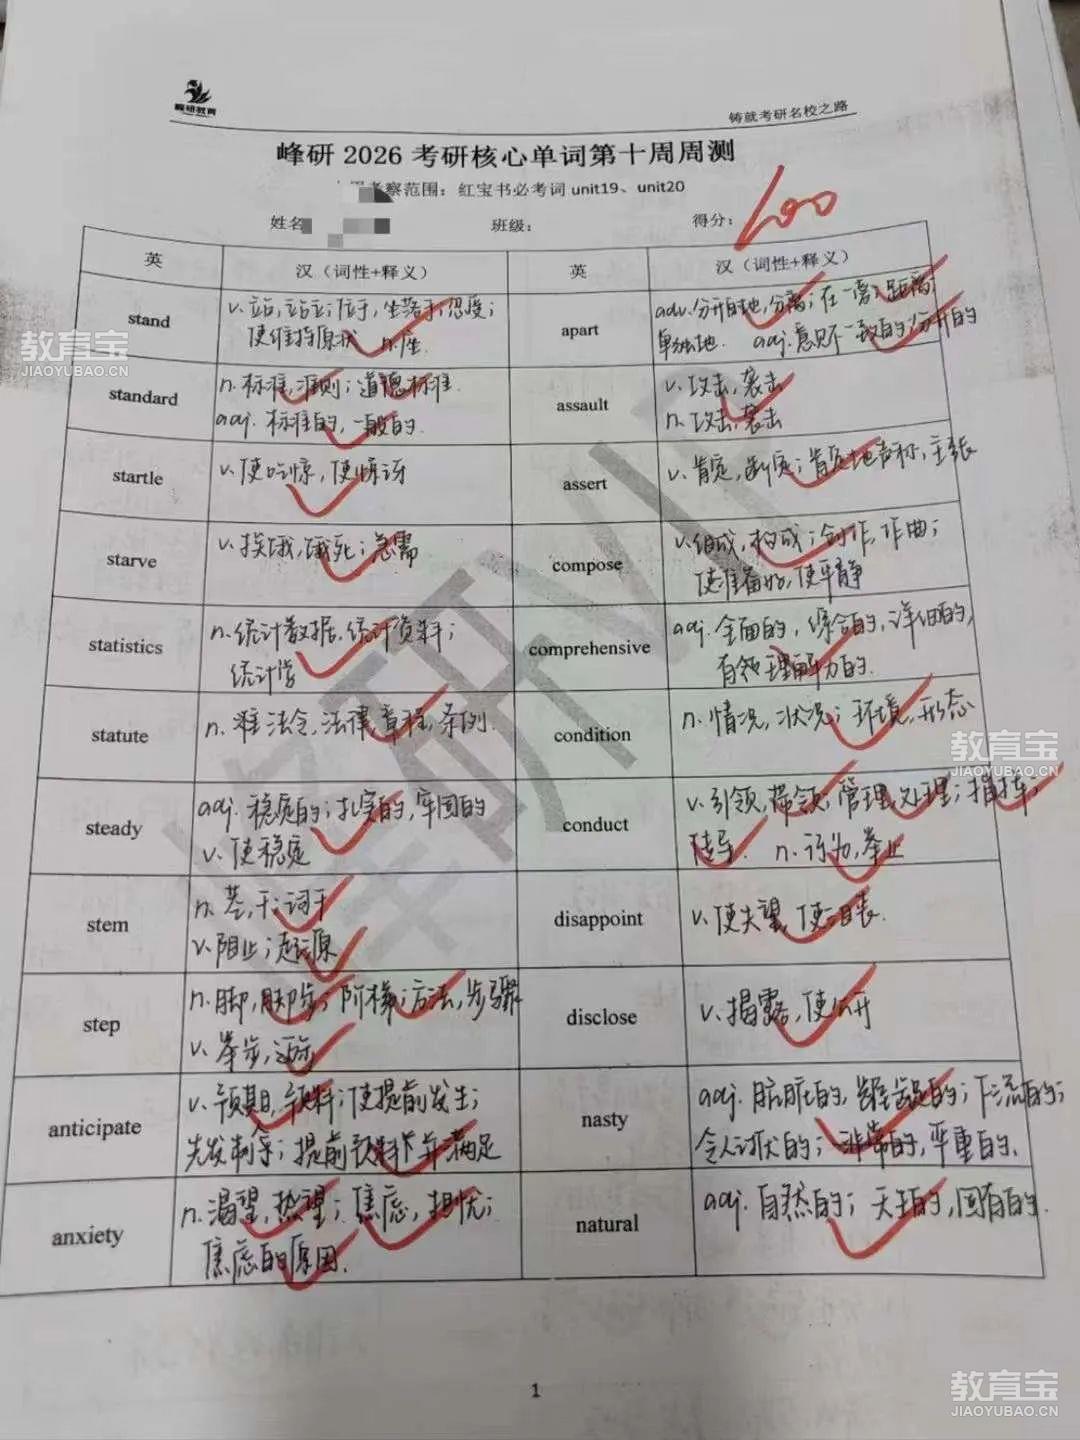 峰研教育
铸就考研名校之路
峰研 2026 考研核心单词第十周周测
考察范围：红宝书必考词 unit19、unit20
姓名
班级：
得分：
100
英
汉（词性+释义）
英
汉（词性+释义）
stand
v. 站，站立；位于，坐落于；忍受；
使维持原状 n.
apart
adv. 分开的地，分离；在一旁；距离；
单独地. adj. 意见不一致的；分开的
standard
n. 标准，准则；道德标准.
adj. 标准的，一般的.
assault
v. 攻击，袭击
n. 攻击，袭击
startle
v. 使吃惊，使惊讶
assert
v. 肯定，断定；肯定地声称，主张
starve
v. 挨饿，饿死；急需
compose
v. 组成，构成；创作，作曲；
使准备好，使平静
statistics
n. 统计数据，统计资料；
统计学
comprehensive
adj. 全面的，综合的，详细的，
有领理解力的.
statute
n. 法令，法律，章程，条例.
condition
n. 情况，状况；环境，形态
steady
adj. 稳定的；扎实的，牢固的
v. 使稳定
conduct
v. 引领，带领；管理，处理；指挥；
n. 行为，举止
stem
n. 茎，干；词干
v. 阻止；起源
disappoint
v. 使失望，使沮丧.
step
n. 脚，脚步；阶梯；方法，步骤
v. 举步，
disclose
v. 揭露，使公开
anticipate
v. 预期，预料；使提前发生；
先发制人；提前预料并满足
nasty
adj. 肮脏的，龌龊的；下流的；
令人讨厌的；非常的，严重的.
anxiety
n. 渴望，热望；焦虑，担忧；
焦虑的原因.
natural
adj. 自然的；天生的，固有的.
1
峰研VIP
教育宝
JIAOYUBAO.CN
教育宝
JIAOYUBAO.CN
教育宝
JIAOYUBAO.CN